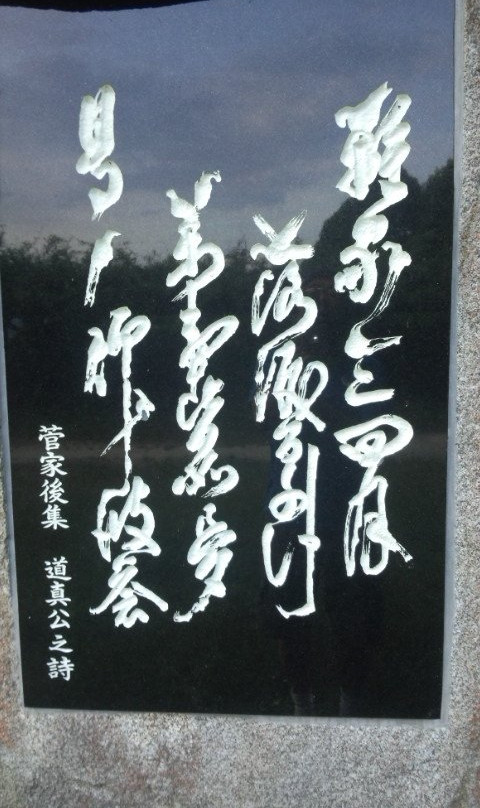 離家三四月
落涙百千行
萬事皆如夢
時々仰彼蒼
菅家後集 道真公之詩